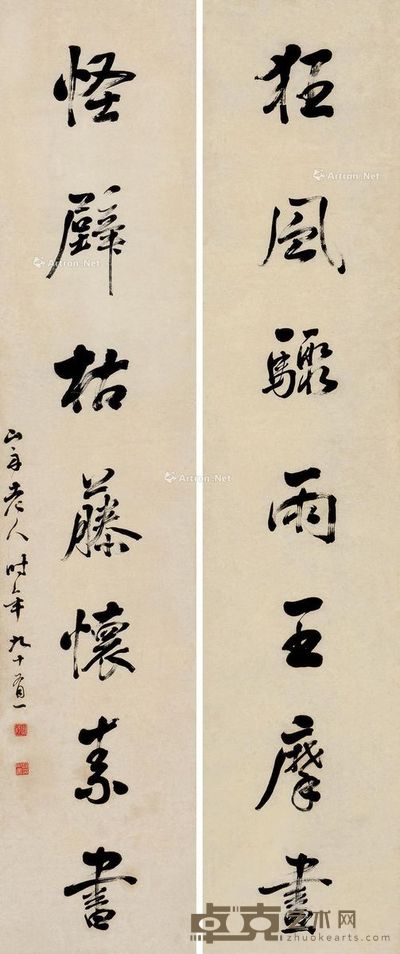 狂風驟雨王摩畫
怪薜枯藤懷素書
山舟老人時年九十有一
Artron.Net
Artron.Net
Artron.Net
卓克艺术网
zhuokearts.com